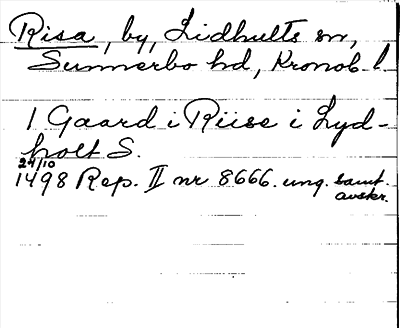 Risa, by, Lidhults sn,
Sunnerbo hd, Kronob. l
1 Gaard i Riise i Lyd-
holt S.
24/10
1498 Rep. II nr 8666. ung. samt.
avskr.